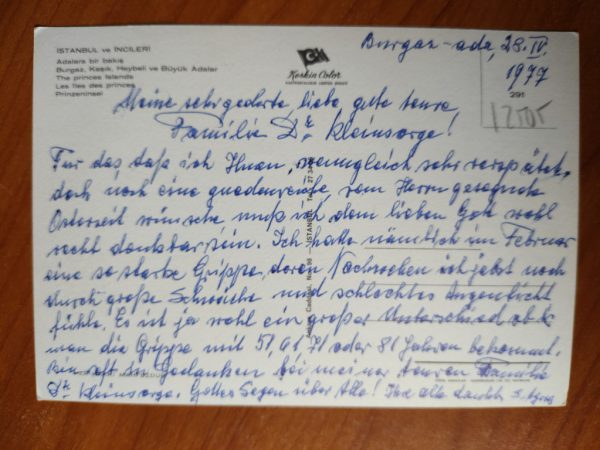 İSTANBUL ve İNCİLERİ
Adalara bir bakış
Burgaz, Kaşık, Heybeli ve Büyük Adalar
The princes Islands
Les îles des princes
Prinzeninsel
Keskin Color
Burgaz-ada, 28. IV.
1977
291
Meine sehr geehrte, liebe, gute teure
Familie Dr. Kleinsorge!
Für das, daß ich Ihnen, wenngleich sehr verspätet,
doch noch eine gnadenreiche vom Herrn gesegnete
Osterzeit wünsche muß ich dem lieben Gott wohl
recht dankbar sein. Ich hatte nämlich im Februar
eine so starke Grippe, deren Nachwehen ich jetzt noch
durch große Schwäche und schlechtes Augenlicht
fühle. Es ist ja wohl ein großer Unterschied ob
man die Grippe mit 51, 61, 71 oder 81 Jahren bekommt.
Bin oft in Gedanken bei meiner teuren Familie
Dr. Kleinsorge. Gottes Segen über Alle! Ihre alte dankb. S.